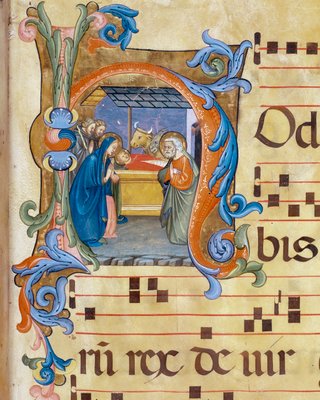 H Od
bis
rū rex de uir